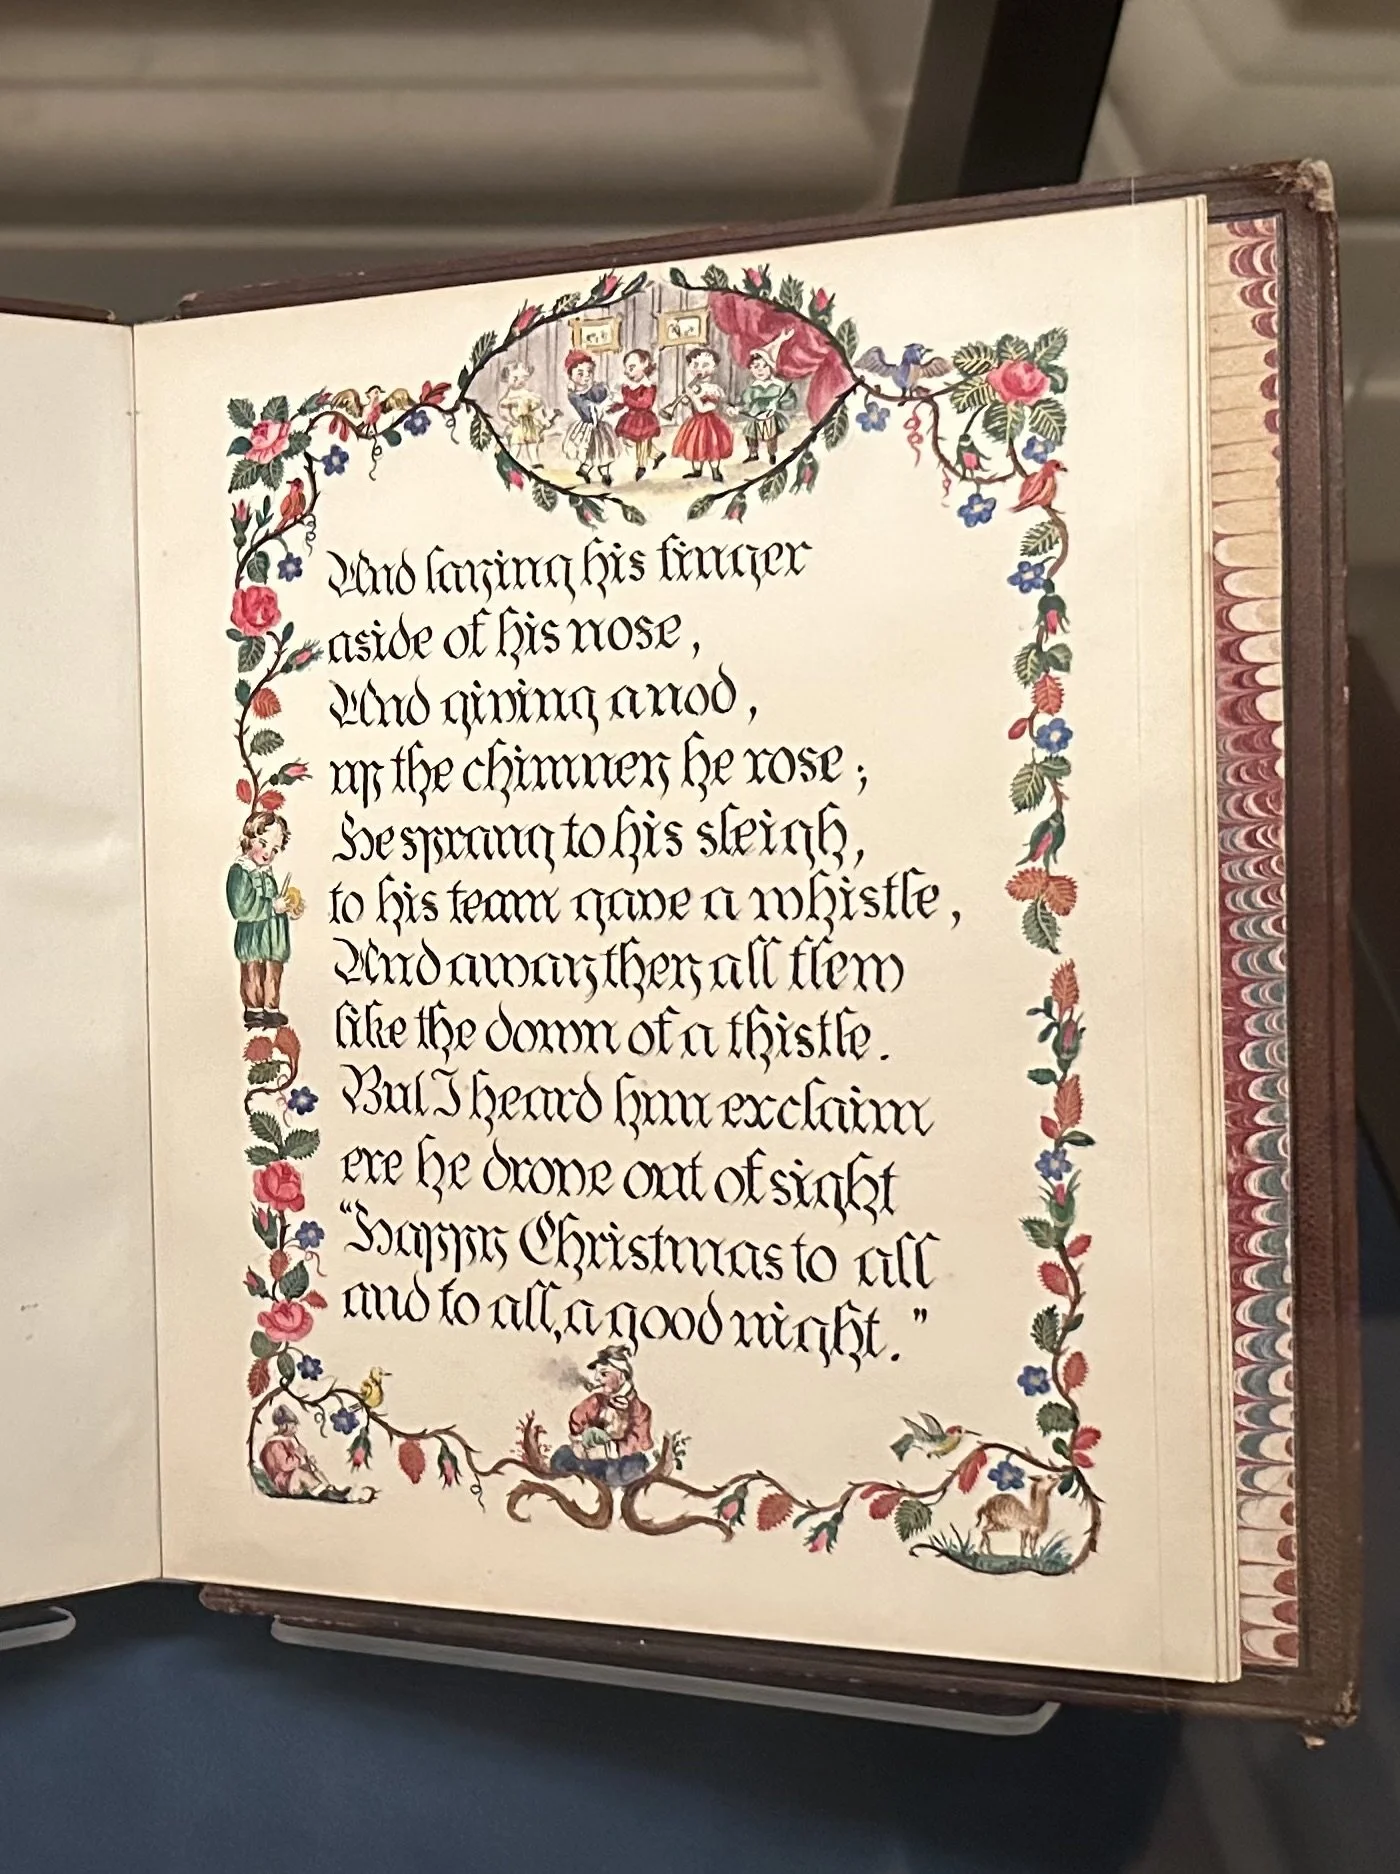 And laying his finger
aside of his nose,
And giving a nod,
up the chimney he rose;
He sprang to his sleigh,
to his team gave a whistle,
And away they all flew
like the down of a thistle.
But I heard him exclaim
ere he drove out of sight
“Happy Christmas to all
and to all, a good night.”